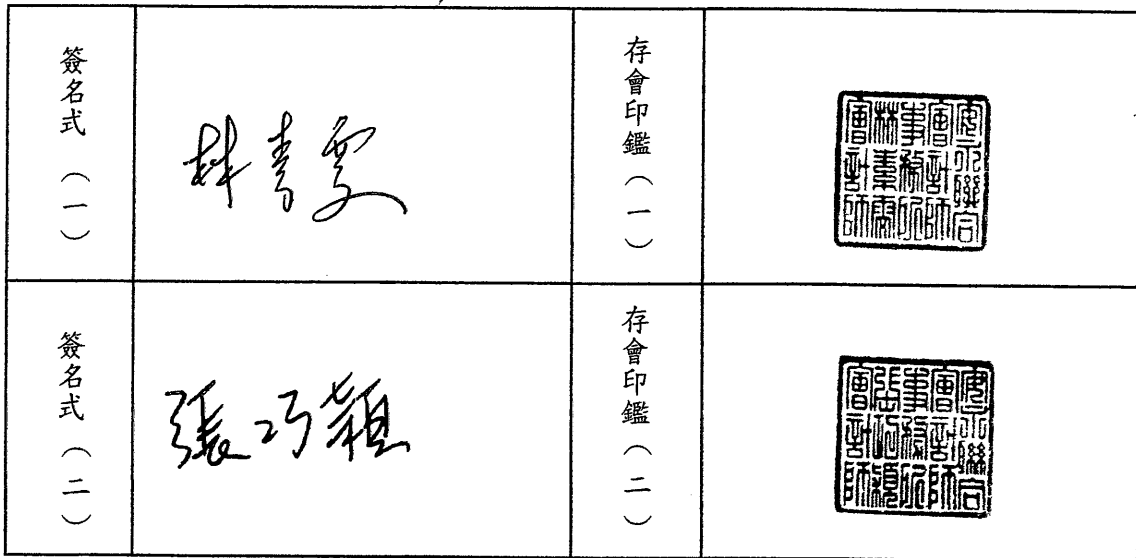 簽名式（一）
林青雯
存會印鑑（一）
安永聯合
會計師
事務所
林青雯
會計師
簽名式（二）
張巧穎
存會印鑑（二）
安永聯合
會計師
事務所
張巧穎
會計師